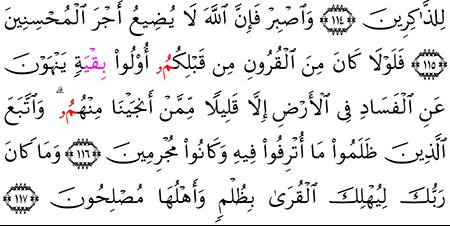 لِلذَّٰكِرِينَ ﴿١١٤﴾ وَٱصۡبِرۡ فَإِنَّ ٱللَّهَ لَا يُضِيعُ أَجۡرَ ٱلۡمُحۡسِنِينَ
﴿١١٥﴾ فَلَوۡلَا كَانَ مِنَ ٱلۡقُرُونِ مِن قَبۡلِكُمُۥٓ أُوْلُواْ بِقۡيَةٖ يَنۡهَوۡنَ
عَنِ ٱلۡفَسَادِ فِي ٱلۡأَرۡضِ إِلَّا قَلِيلٗا مِّمَّنۡ أَنجَيۡنَا مِنۡهُمُۥۗ وَٱتَّبَعَ
ٱلَّذِينَ ظَلَمُواْ مَآ أُتۡرِفُواْ فِيهِ وَكَانُواْ مُجۡرِمِينَ ﴿١١٦﴾ وَمَا كَانَ
رَبُّكَ لِيُهۡلِكَ ٱلۡقُرَىٰ بِظُلۡمٖ وَأَهۡلُهَا مُصۡلِحُونَ ﴿١١٧﴾